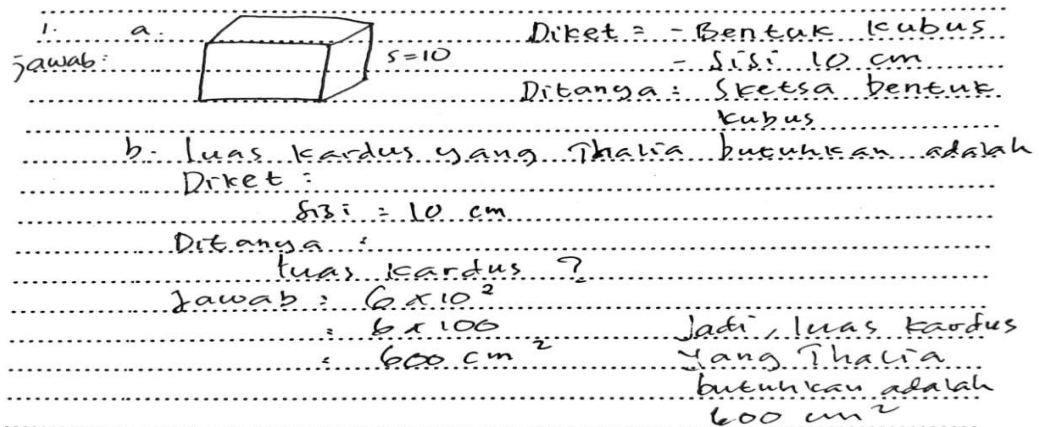 1. a. Diket = - Bentuk kubus
jawab: s=10 - Sisi 10 cm
Ditanya : Sketsa bentuk
kubus
b. luas kardus yang Thalia butuhkan adalah
Diket :
sisi = 10 cm
Ditanya :
luas kardus ?
Jawab : 6 x 10²
: 6 x 100
: 600 cm²
Jadi, luas kardus
yang Thalia
butuhkan adalah
600 cm²